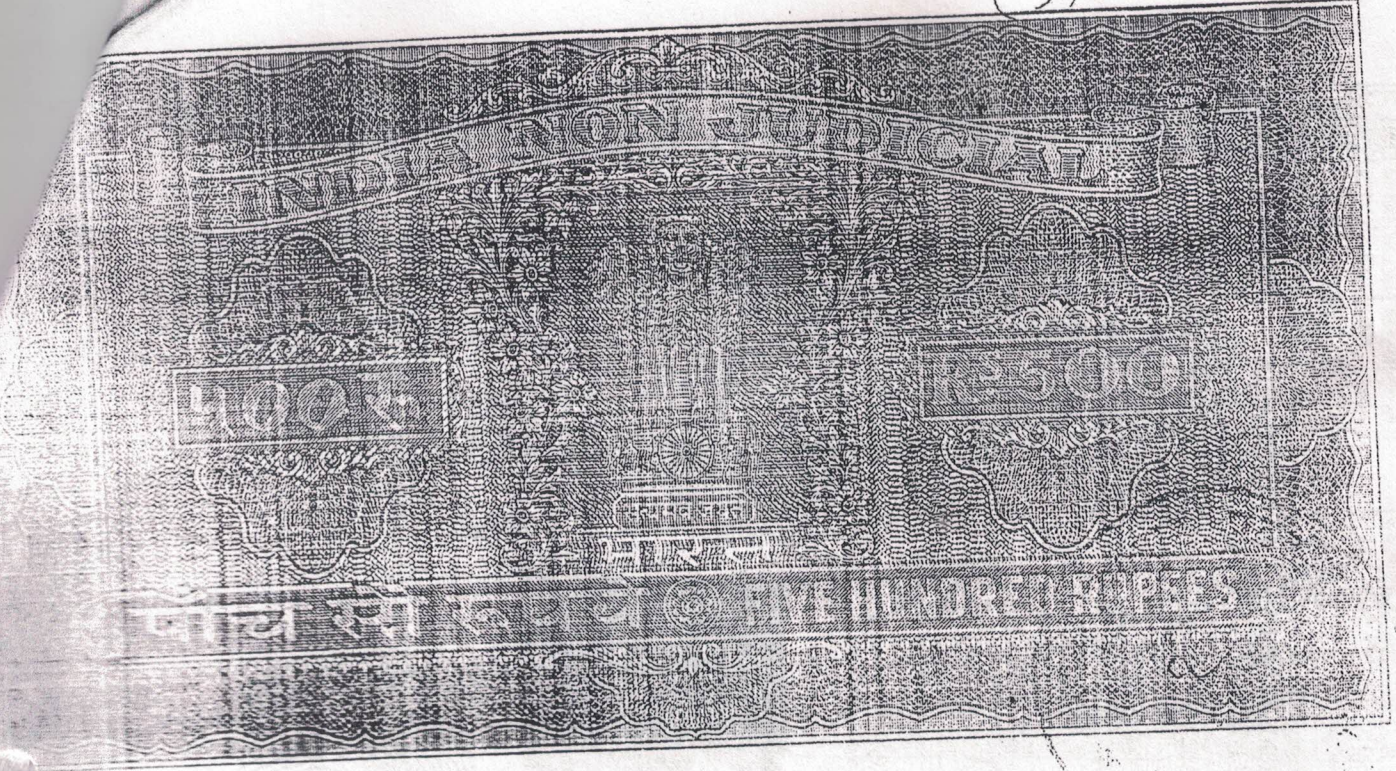 INDIA NON JUDICIAL
५०० रु
Rs 500
सत्यमेव जयते
भारत
पाँच सौ रूपये FIVE HUNDRED RUPEES